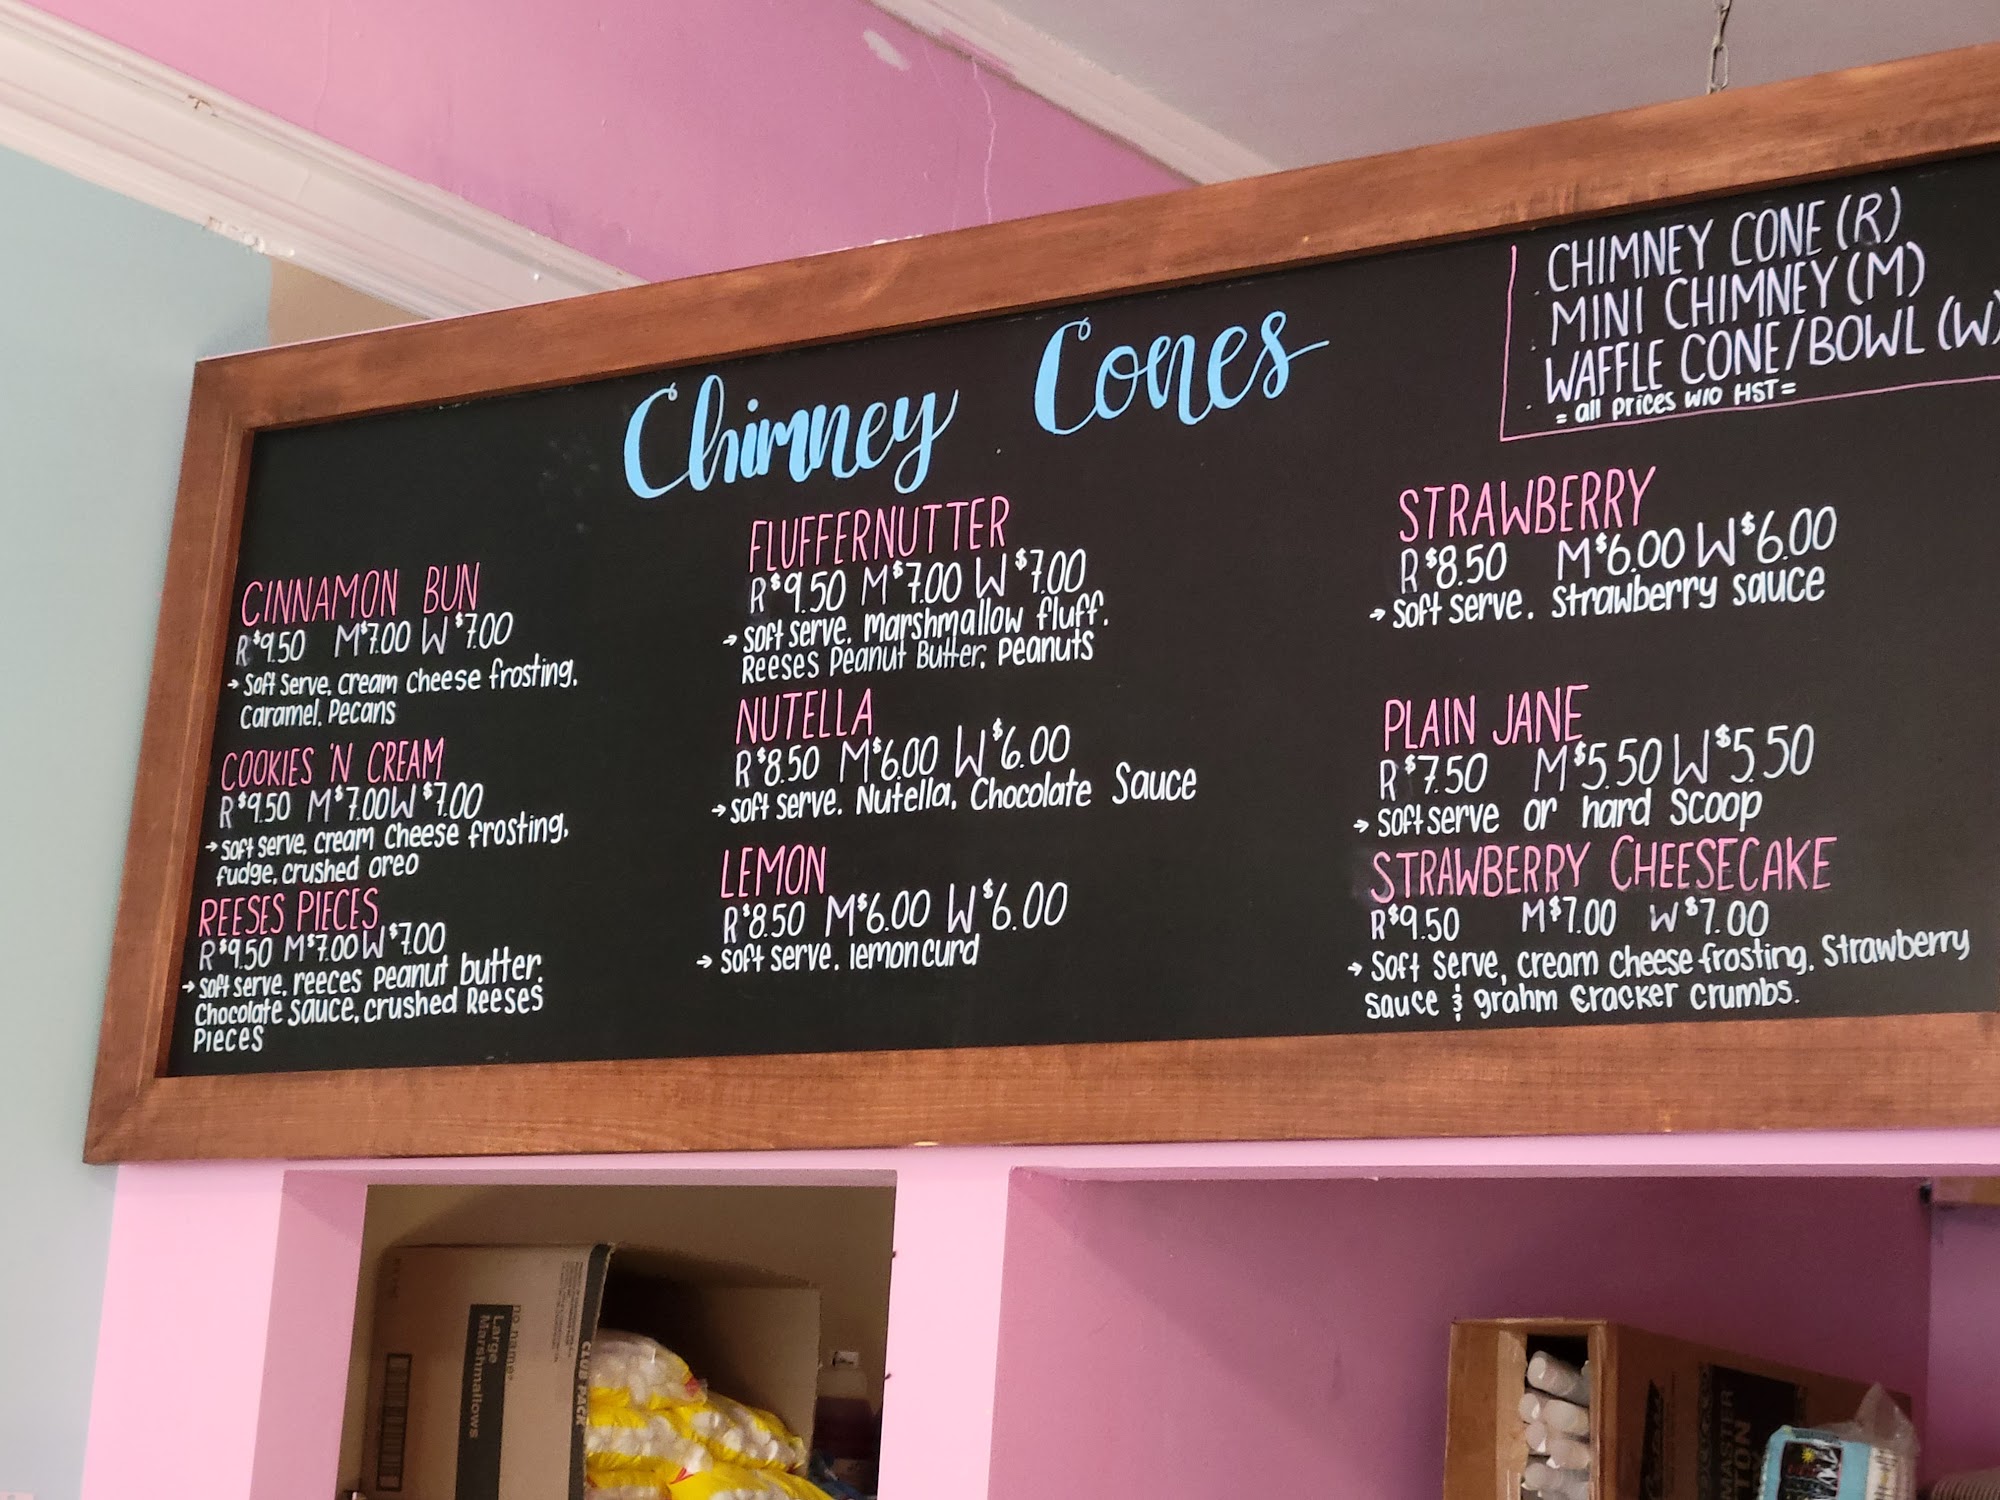 Chimney Cones
CHIMNEY CONE (R)
MINI CHIMNEY (M)
WAFFLE CONE/BOWL (W)
= all prices w/o HST =
CINNAMON BUN
R $9.50 M $7.00 W $7.00
→ Soft serve, cream cheese frosting,
Caramel, Pecans
COOKIES 'N CREAM
R $9.50 M $7.00 W $7.00
→ Soft serve, cream cheese frosting,
fudge, crushed oreo
REESES PIECES
R $9.50 M $7.00 W $7.00
→ Soft serve, reeces Peanut butter,
Chocolate Sauce, crushed Reeses
Pieces
FLUFFERNUTTER
R $9.50 M $7.00 W $7.00
→ Soft serve, marshmallow fluff,
Reeses Peanut Butter, Peanuts
NUTELLA
R $8.50 M $6.00 W $6.00
→ Soft serve, Nutella, Chocolate Sauce
LEMON
R $8.50 M $6.00 W $6.00
→ Soft serve, lemon curd
STRAWBERRY
R $8.50 M $6.00 W $6.00
→ Soft serve, Strawberry sauce
PLAIN JANE
R $7.50 M $5.50 W $5.50
→ Soft serve or hard Scoop
STRAWBERRY CHEESECAKE
R $9.50 M $7.00 W $7.00
→ Soft serve, cream cheese frosting, Strawberry
Sauce & grahm Cracker crumbs.
no name
Large
Marshmallows
CLUB PACK